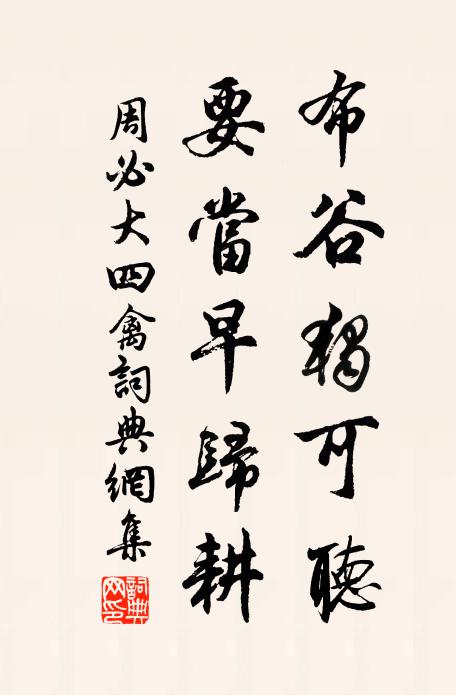 布谷獨可聽
要當早歸耕
周必大四禽詞典網集
詞典網印